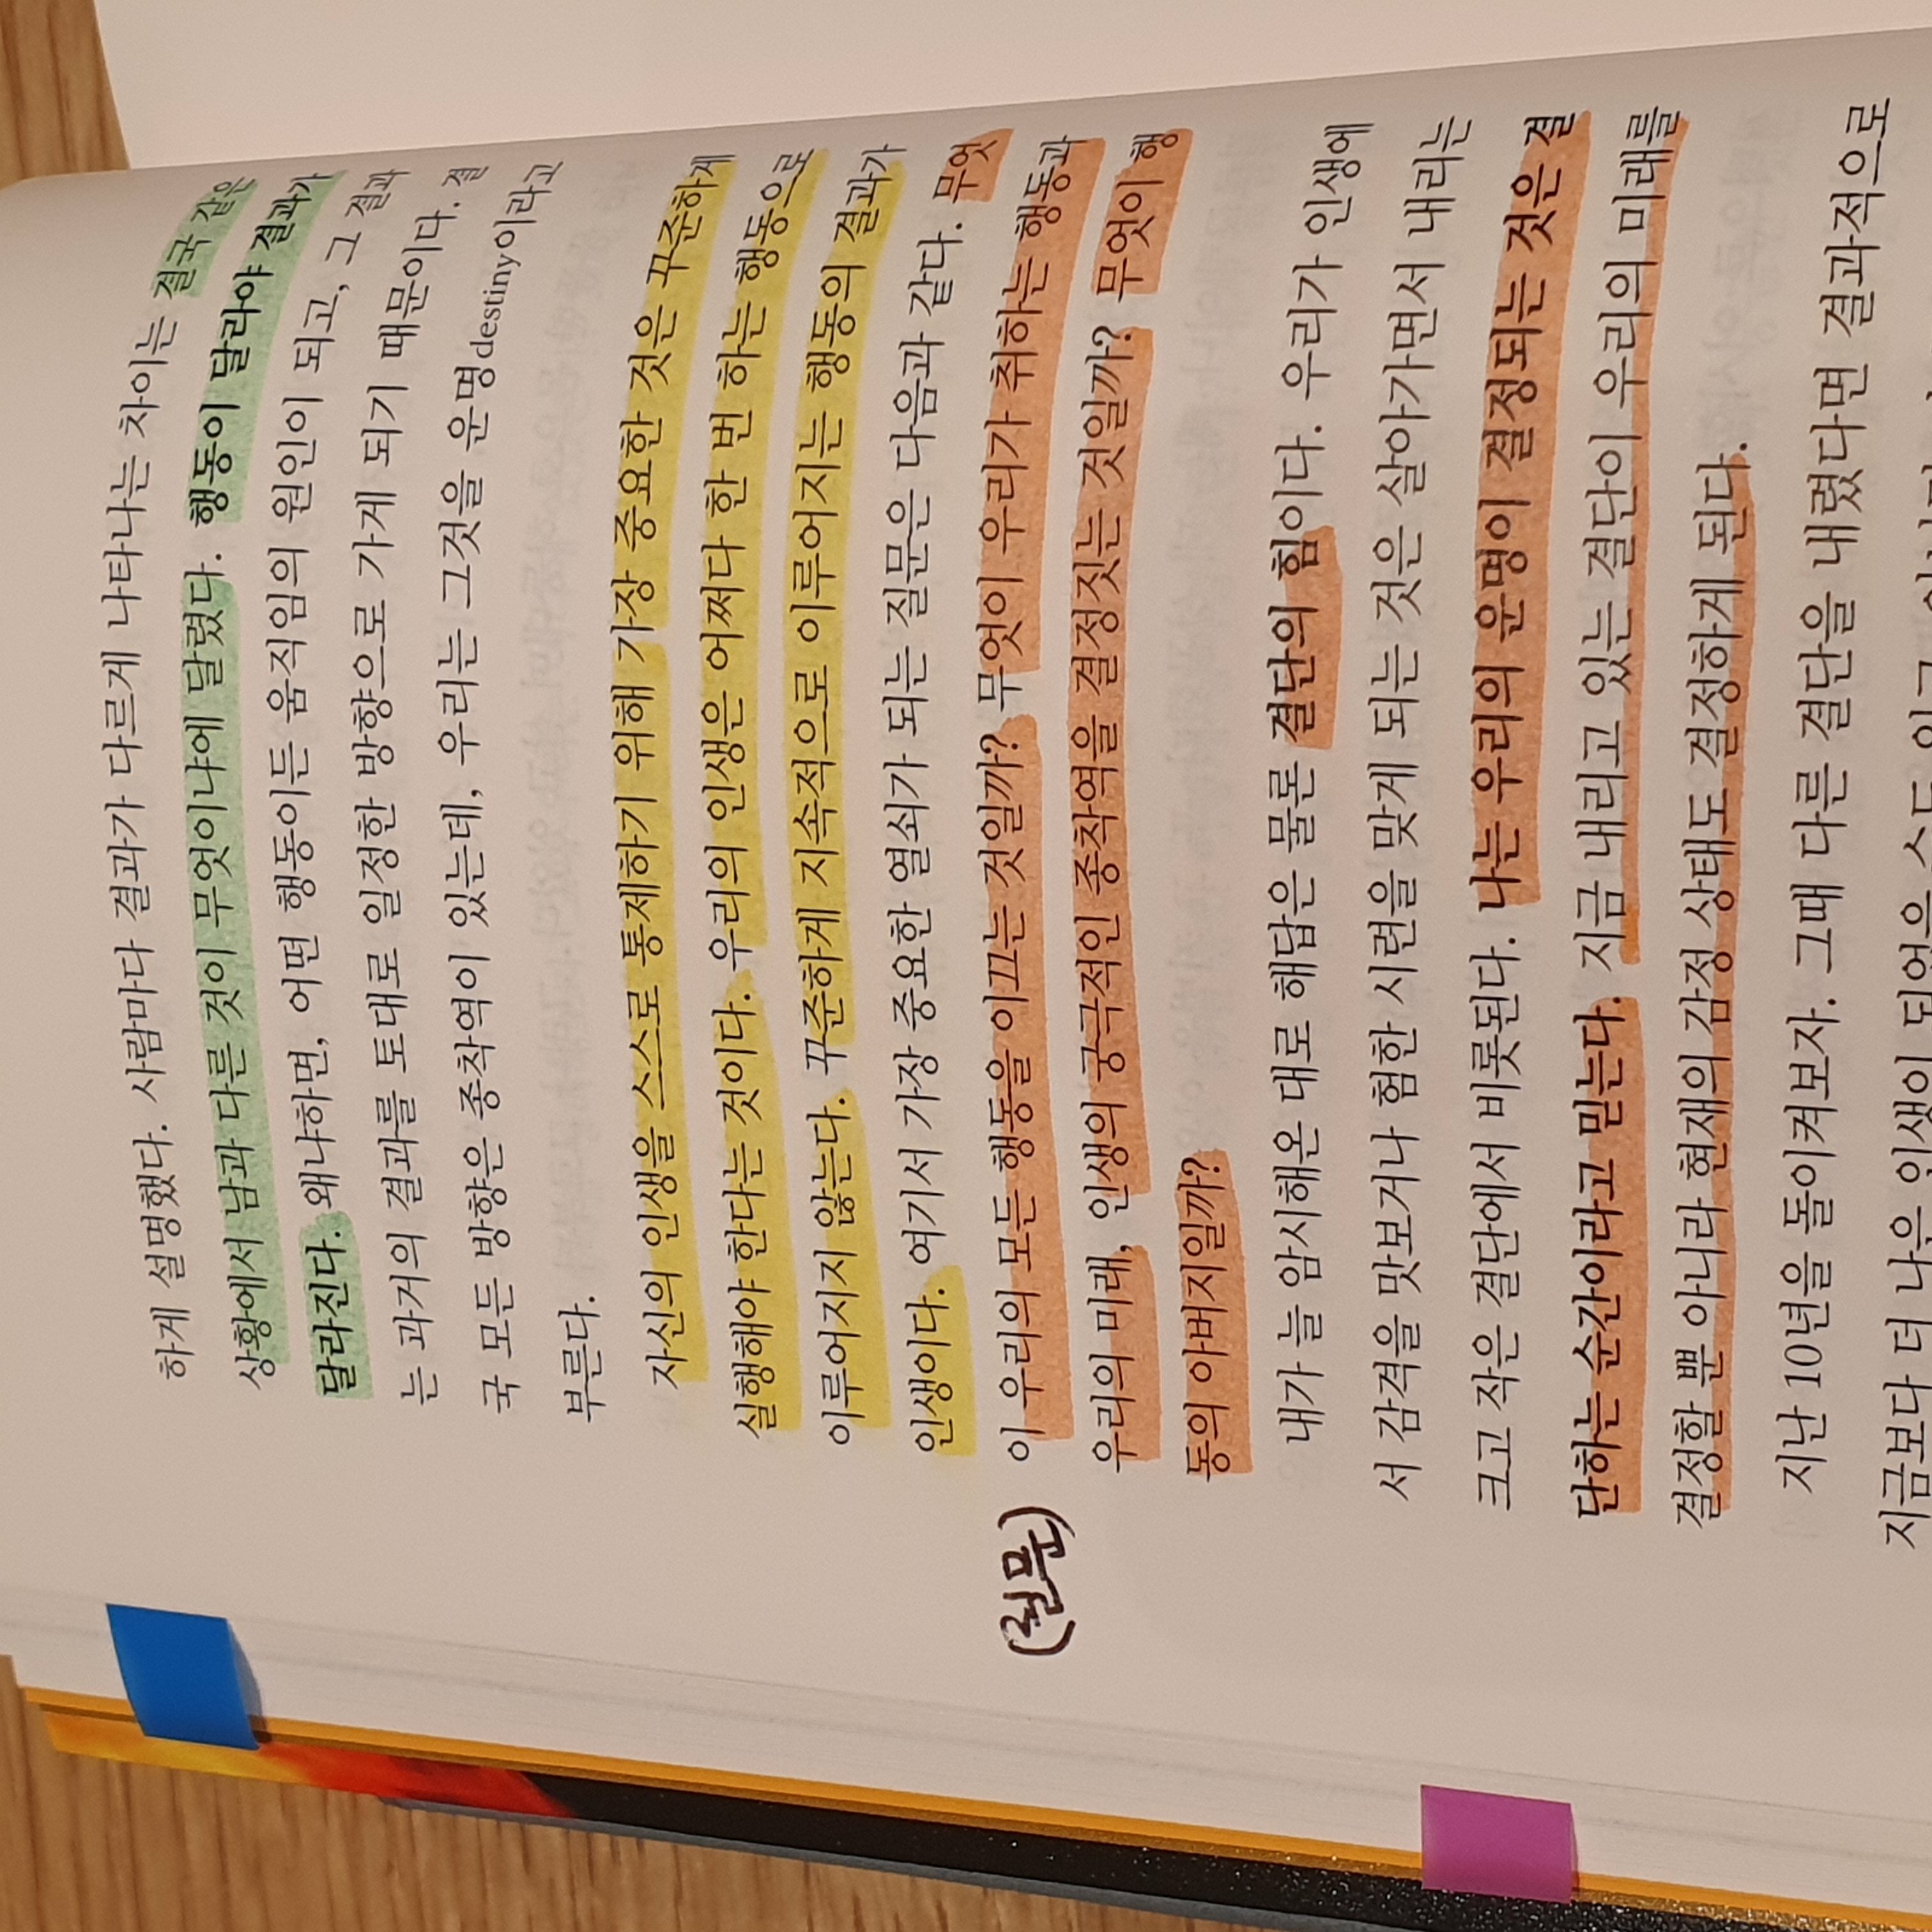 하게 설명했다. 사람마다 결과가 다르게 나타나는 차이는 결국 같은
상황에서 남과 다른 것이 무엇이냐에 달렸다. 행동이 달라야 결과가
달라진다. 왜냐하면, 어떤 행동이든 움직임의 원인이 되고, 그 결과
는 과거의 결과를 토대로 일정한 방향으로 가게 되기 때문이다. 결
국 모든 방향은 종착역이 있는데, 우리는 그것을 운명destiny이라고
부른다.
자신의 인생을 스스로 통제하기 위해 가장 중요한 것은 꾸준하게
실행해야 한다는 것이다. 우리의 인생은 어쩌다 한 번 하는 행동으로
이루어지지 않는다. 꾸준하게 지속적으로 이루어지는 행동의 결과가
인생이다. 여기서 가장 중요한 열쇠가 되는 질문은 다음과 같다. 무엇
이 우리의 모든 행동을 이끄는 것일까? 무엇이 우리가 취하는 행동과
우리의 미래, 인생의 궁극적인 종착역을 결정짓는 것일까? 무엇이 행
동의 아버지일까?
내가 늘 암시해온 대로 해답은 물론 결단의 힘이다. 우리가 인생에
서 감격을 맛보거나 험한 시련을 맞게 되는 것은 살아가면서 내리는
크고 작은 결단에서 비롯된다. 나는 우리의 운명이 결정되는 것은 결
단하는 순간이라고 믿는다. 지금 내리고 있는 결단이 우리의 미래를
결정할 뿐 아니라 현재의 감정 상태도 결정하게 된다.
지난 10년을 돌이켜보자. 그때 다른 결단을 내렸다면 결과적으로
지금보다 더 나은 인생이 되었을